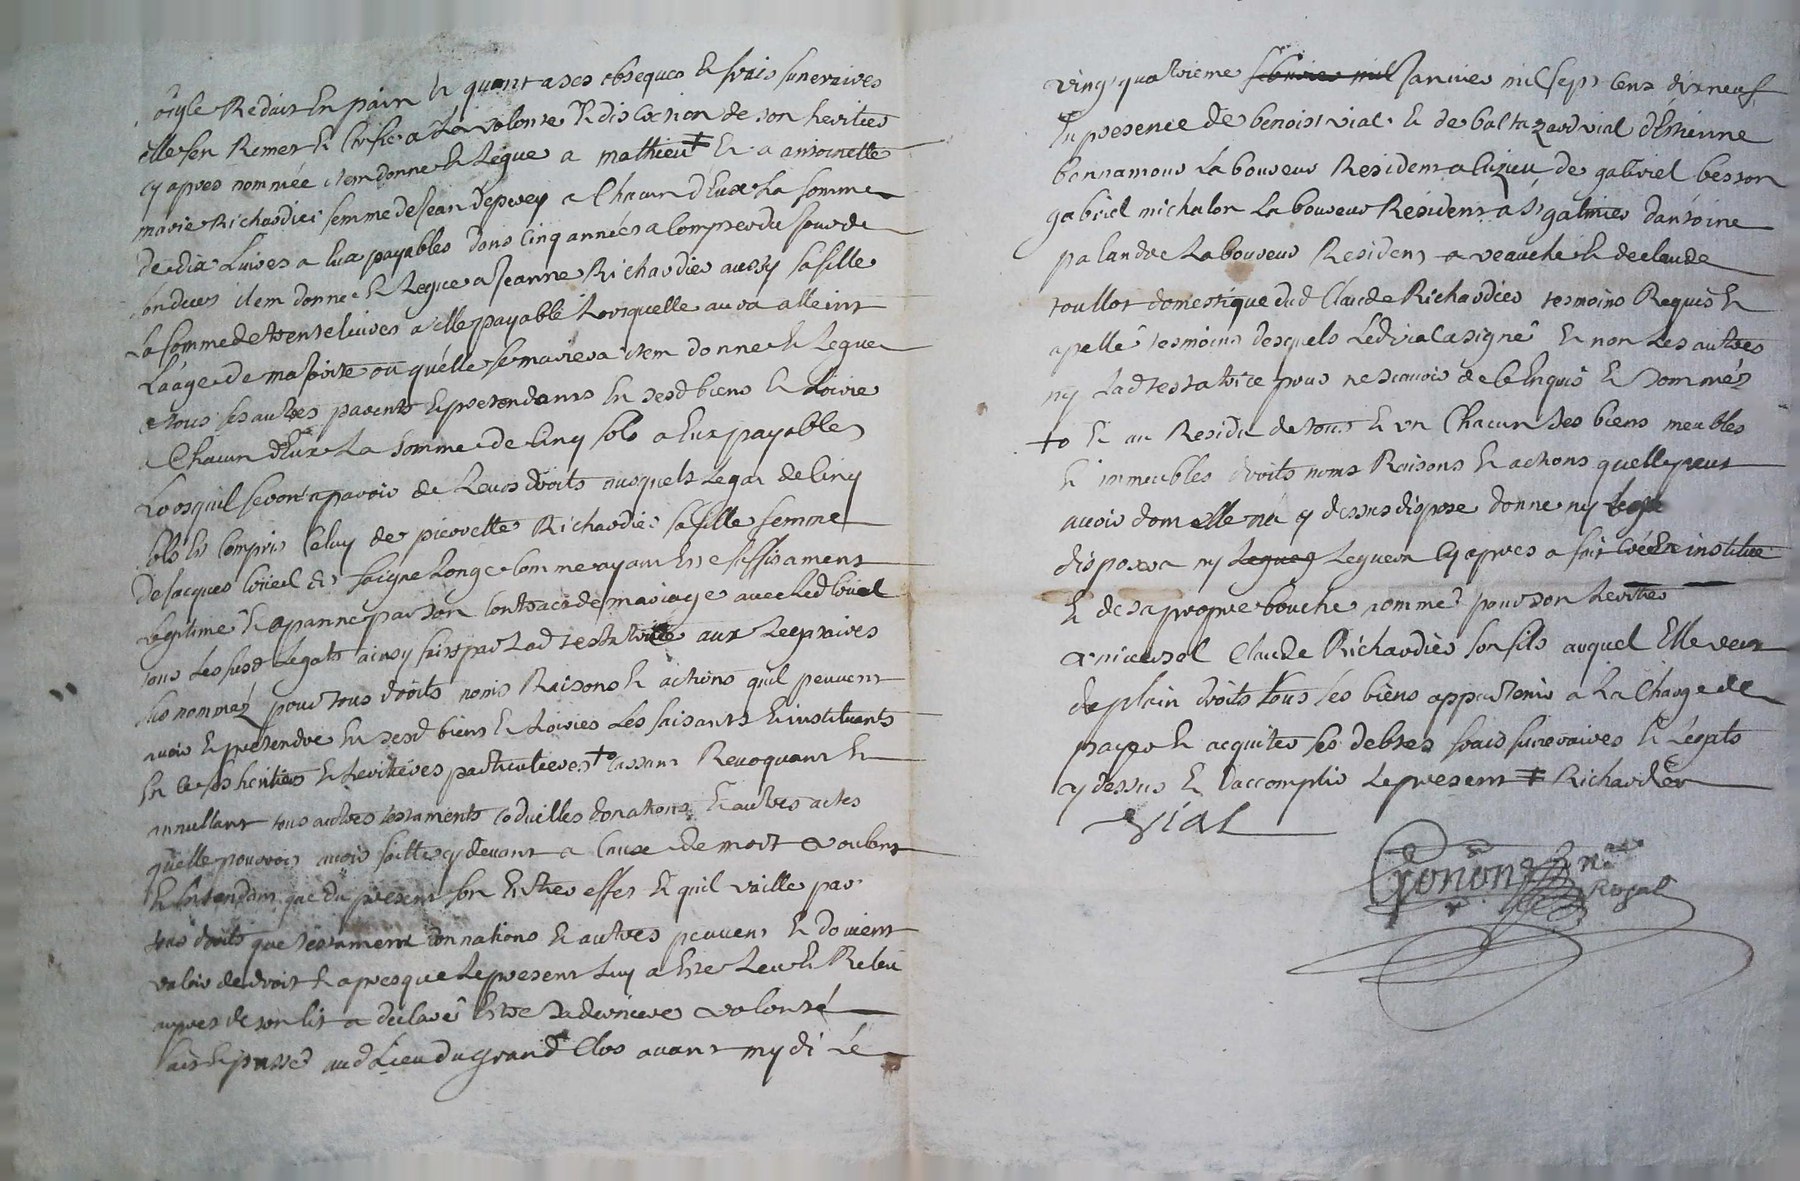 seigle Reduit En pain Et quant a ses obseques Et frais funeraires
elle sen Remet Et Confie a La volonte Et discretion de son heritier
cy apres nommée item donne Et Legue a mathieu ‡ Et a antoinette
marie Richardier femme de Jean deprey a Chacun dEux La somme
de dix Livres a Eux payables dans Cinq années a Compter du Jour de
son deces item donne Et Legue a Jeanne Richardier aussy sa fille
La somme de trente livres a Elle payable Lorsquelle aura atteint
Laage de majorité ou quélle se mariera item donne Et Legue
a tous ses autres parents Et pretendants En sesd biens Et hoirie
a Chacun dEux La somme de Cinq sols a Eux payables
Lorsquil seront aparoir de Leurs droits auxquels Legat de Cinq
sols Est Compris Celuy de pierrette Richardier sa fille femme
de Jacques Coried de saigne Longe Comme ayant Este suffisament
Legitimé Et apanné par son Contract de mariage avec Led Coried
tous Les susd Legats ainsy faits par Lad testatrice aux Legataires
sus nommez pour tous droits noms Raisons Et actions quil peuvent
avoir Et pretendre En sesd biens Et hoiries Les faisants Et instituants
En Ce ses heritiers Et heritieres particulieres † Cassant Revoquant Et
annullant tous autres testaments Codicilles donations Et autres actes
quelle pouvroit avoir faitte cy devant a Cause de mort voulant
Et Entendant que du present son Entier effet Et quil vaille par
tous droits que testament donnations Et autres peuvent Et doivent
valoir de droit Et apres que Le present Luy a Este Leu Et Releu
aupres de son lit a déclaré Estre sa derniere volonté
fait Et passé aud Lieu du grand Clos avant mydi Le
vingt quatrieme fevrier mil Janvier mil sept Cent dix neuf
En presence de benoist vial Et de baltazard vial dEstienne
bonnamour Laboureur Resident a Cuzieu de gabriel besson
gabriel michalon Laboureur Resident a St galmier dantoine
palandre Laboureur Resident a veauche Et de claude
toullot domestique dud Claude Richardier tesmoins Requis Et
apellé tesmoins desquels Led vial a signé Et non Les autres
ny Lad testatrice pour ne scavoir de Ce Enquis Et sommés
†o Et au Residu de tous Et un Chacun ses biens meubles
Et immeubles droits noms Raisons Et actions quelle peut
avoir dont elle na cy dessus dispose donne ny Legué
disposera ny Leguera Leguera Cy apres a fait Créé Et institué
Et de sa propre bouche nommé pour son heritier
universel Claude Richardier son fils auquel Elle veut
de plain droits tous ses biens appartenir a La Charge de
payer Et acquiter ses debtes frais funeraires Et Légats
cy dessus Et daccomplir Le present ‡ Richardier
Vial
Cronon n.re
Royal